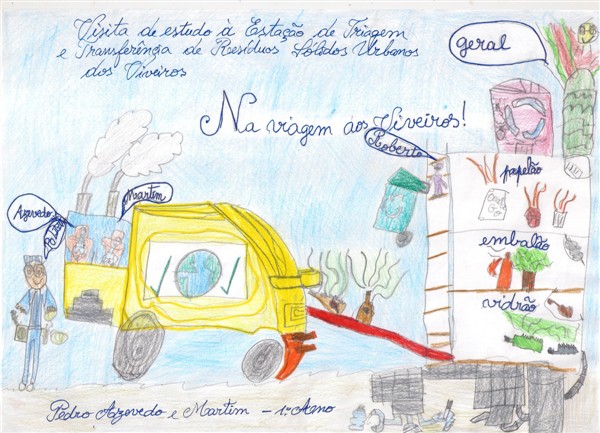 Visita de estudo à Estação de Triagem
e Transferênça de Resíduos Sólidos Urbanos
dos Viveiros
geral
Na viagem aos Viveiros!
Roberto
papelão
Martim
Azevedo
embalão
vidrão
Pedro Azevedo e Martim – 1.º Ano